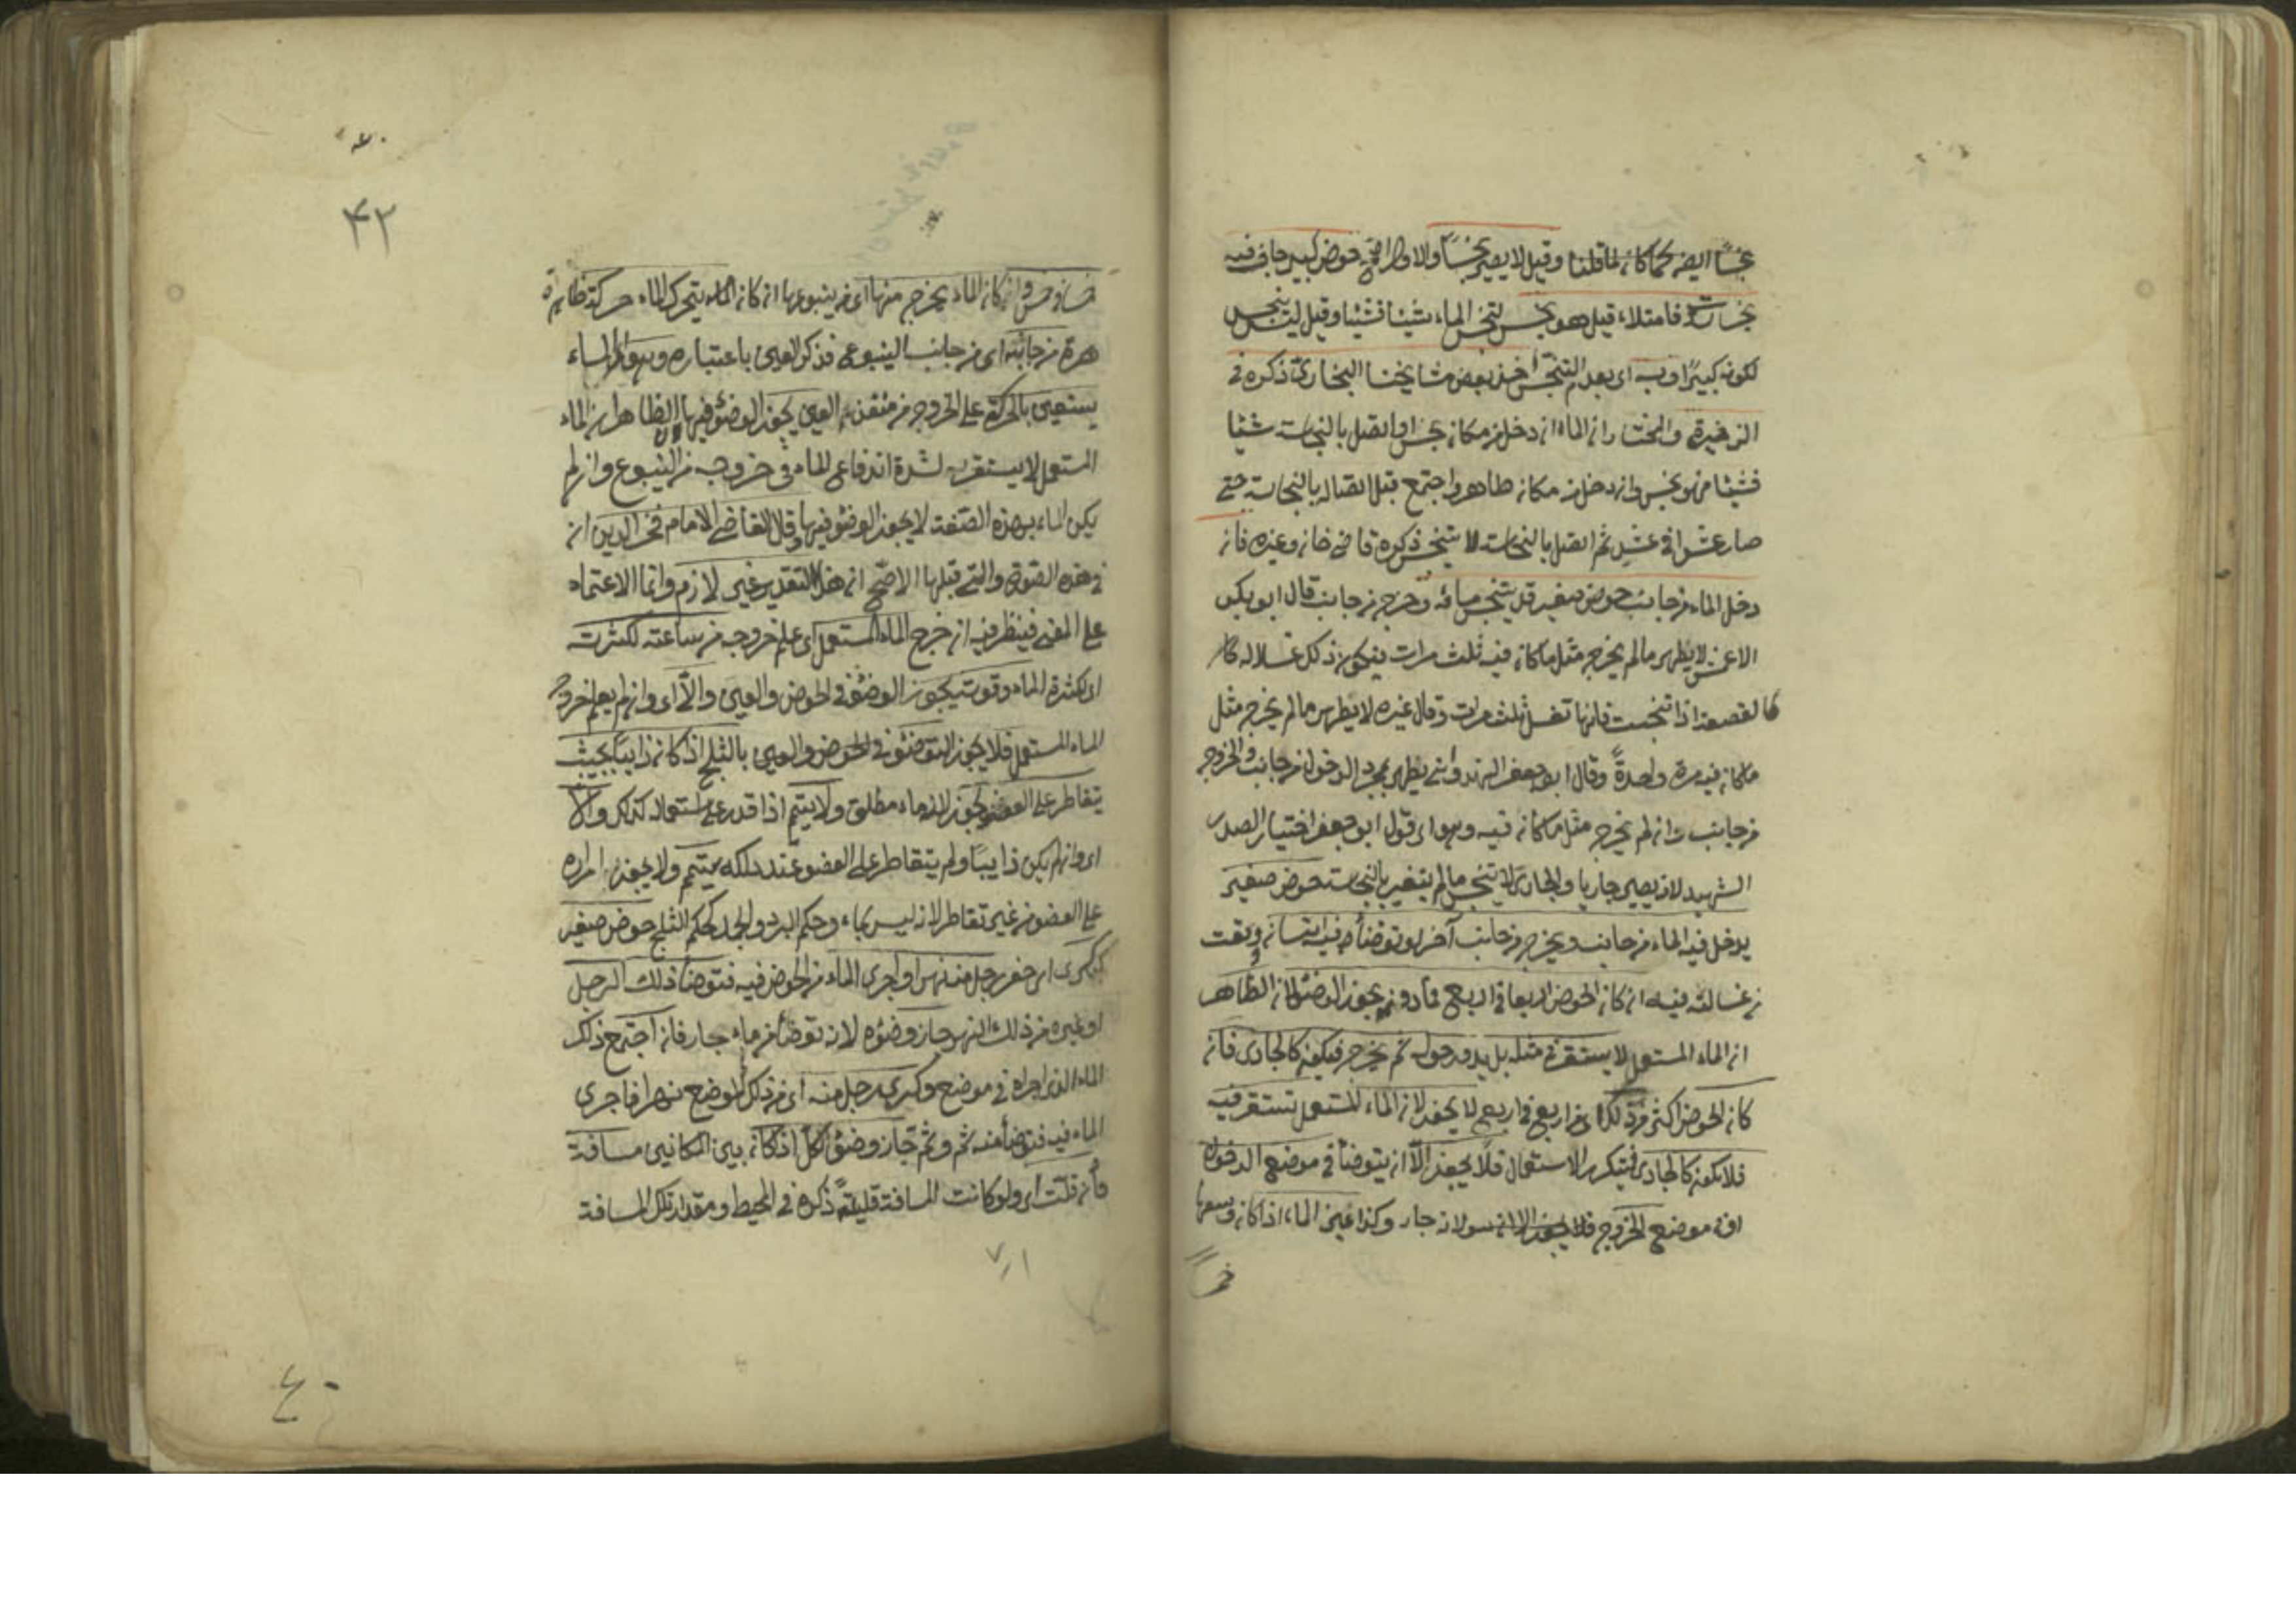 نجسا ايضا كما كان لما قلنا وقيل لا يصير نجسا والاول اصح حوض كبير جاف فيه
نجاسات فامتلاء قيل هو نجس لتنجس الماء شيئا فشيئا وقيل ليس بنجس
لكونه كبيرا وبه اى بعدم التنجس أخذ بعض مشايخنا البخارى ذكره فى
الذخيرة والمختار ان الماء ان دخل من مكان نجس او اتصل بالنجاسة شيئا
فشيئا فهو نجس وان دخل من مكان طاهر واجتمع قبل اتصاله بالنجاسة حتى
صار عشرا فى عشر ثم اتصل بالنجاسة لا يتنجس ذكره قاضى خان وغيره فان
دخل الماء من جانب حوض صغير قد يتنجس مائه وخرج من جانب قال ابو بكر
الاعمش لا يطهر مالم يخرج مثل ما كان فيه ثلث مرات فيكون ذلك غسلا له
كالقصعة اذا تنجست فانها تغسل ثلث مرات وقال غيره لا يطهر مالم يخرج مثل
ما كان فيه مرة واحدة وقال ابو جعفر الهندوانى يطهر بمجرد الدخول من جانب والخروج
من جانب وان لم يخرج مثل ما كان فيه وهو اى قول ابو جعفر اختيار الصدر
الشهيد لانه يصير جاريا والجارى لا يتنجس مالم يتغير بالنجاسة حوض صغير
يدخل فيه الماء من جانب ويخرج من جانب آخر لو توضأ فيه انسان ووقعت
غسالته فيه ان كان الحوض اربعا فى اربع فما دونه يجوز الوضؤ لان الظاهر
ان الماء المستعمل لا يستقر فى مثله بل يدور حوله ثم يخرج فيكون كالجارى فان
كان الحوض اكثر من ذلك اى من اربع فى اربع لا يجوز لان الماء المستعمل يستقر فيه
فلا يكون كالجارى فيتكرر الاستعمال فلا يجوز الا ان يتوضأ فى موضع الدخول
او فى موضع الخروج لانه جار وكذا عين الماء اذا كان وسعها
خمسا فى خمس وان كان الماء يخرج منها اى من ينبوعها ان كان الماء يتحرك الماء حركة ظاهرة
من جانبه اى من جانب الينبوع فذكر العين باعتباره وهو الماء
يستعين بالحركة على الخروج من منفذ العين يجوز الوضؤ فيها لان الظاهر ان الماء
المستعمل لا يستقر به لشدة اندفاع الماء فى خروجه من الينبوع وان لم
يكن الماء بهذه الصفة لا يجوز الوضؤ فيها وقال القاضى الامام فخر الدين ان
فى هذه الصورة والتى قبلها الاصح ان هذا التقدير غير لازم وانما الاعتماد
على المعنى فينظر فيه ان خرج الماء المستعمل اى علم خروجه من ساعته لكثرته
اى لكثرة الماء وقوته يجوز الوضؤ فى الحوض والعين والا اى وان لم يعلم خروج
الماء المستعمل فلا يجوز التوضئ فى الحوض والعين بالثلج اذا كان ذايبا بحيث
يتقاطر على العضو يجوز لانه ماء مطلق ولا يتيمم اذا قدر على استعماله كذلك والا
اى وان لم يكن ذايبا ولم يتقاطر على العضو عند دلكه يتيمم ولا يجوز امراره
على العضو من غير تقاطر لانه ليس بماء وحكم البرد والجمد كحكم الثلج حوض صغير
كرى اى حفر رجل منه نهرا واجرى الماء من الحوض فيه فتوضأ ذلك الرجل
او غيره من ذلك النهر جاز وضوءه لانه توضأ من ماء جار فان اجتمع ذلك
الماء الذى اجراه فى موضع وكرى رجل منه اى من ذلك الموضع نهرا فاجرى
الماء فيه فتوضأ منه ثم وثم جاز وضؤ الكل اذا كان بين المكانين مسافة
وان قلت اى ولو كانت المسافة قليلة ذكره فى المحيط ومقدار تلك المسافة
٤٢